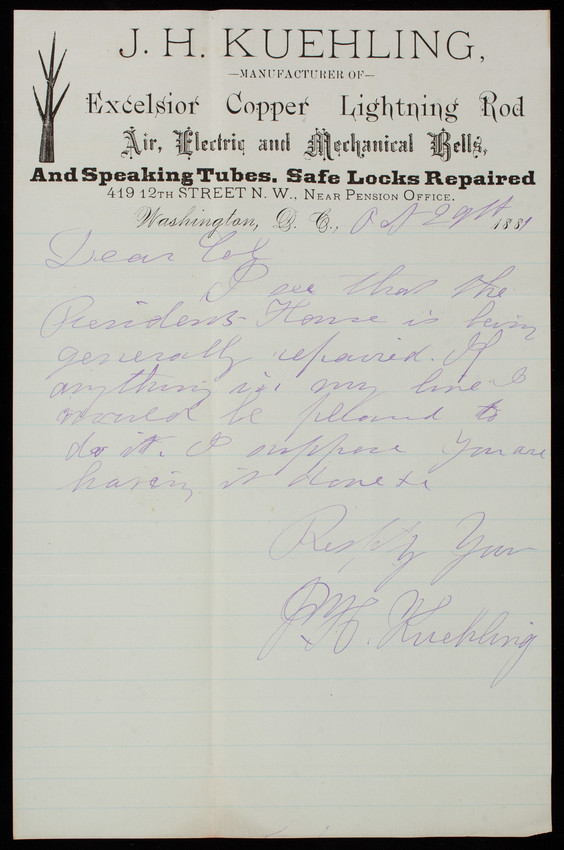 J. H. KUEHLING,
—MANUFACTURER OF—
Excelsior Copper Lightning Rod
Air, Electric and Mechanical Bells,
And Speaking Tubes. Safe Locks Repaired
419 12TH STREET N. W., NEAR PENSION OFFICE.
Washington, D. C., Oct 29th 1881
Dear Col
I see that the
Presidents House is being
generally repaired. If
anything in my line I
would be pleased to
do it. I suppose you are
having it done &c
Respfly Your
J. H. Kuehling